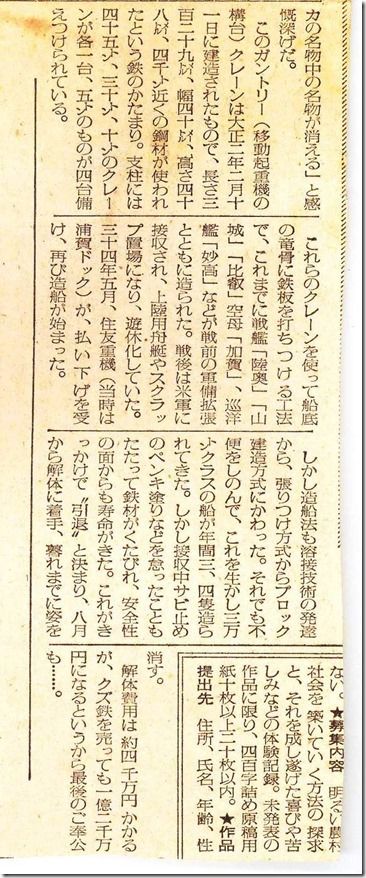 カの名物中の名物が消える」と感
慨深げだ。
このガントリー（移動起重機の
構台）クレーンは大正二年二月十
一日に建造されたもので、長さ三
百二十九㍍、幅四十㍍、高さ四十
八㍍、四千㌧近くの鋼材が使われ
たという鉄のかたまり。支柱には
四十五㌧、三十㌧、十㌧のクレー
ンが各一台、五㌧のものが四台備
えつけられている。
これらのクレーンを使って船底
の竜骨に鉄板を打ちつける工法
で、これまでに戦艦「陸奥」「山
城」「比叡」空母「加賀」、巡洋
艦「妙高」などが戦前の軍備拡張
とともに造られた。戦後は米軍に
接収され、上陸用舟艇やスクラッ
プ置場になり、遊休化していた。
三十四年五月、住友重機（当時は
浦賀ドック）が、払い下げを受
け、再び造船が始まった。
しかし造船法も溶接技術の発達
から、張りつけ方式からブロック
建造方式にかわった。それでも不
便をしのんで、これを生かし三万
㌧クラスの船が年間三、四隻造ら
れてきた。しかし接収中サビ止め
のペンキ塗りなどを怠ったことも
たたって鉄材がくたびれ、安全性
の面からも寿命がきた。これがき
っかけで〝引退〟と決まり、八月
から解体に着手、暮れまでに姿を
消す。
解体費用は約四千万円かかる
が、クズ鉄を売っても一億二千万
円になるというから最後のご奉公
も……。
ない。★募集内容　明るい農村
社会を築いていく方法の探求
と、それを成し遂げた喜びや苦
しみなどの体験記録。未発表の
作品に限り、四百字詰め原稿用
紙十枚以上二十枚以内。★作品
提出先　住所、氏名、年齢、性